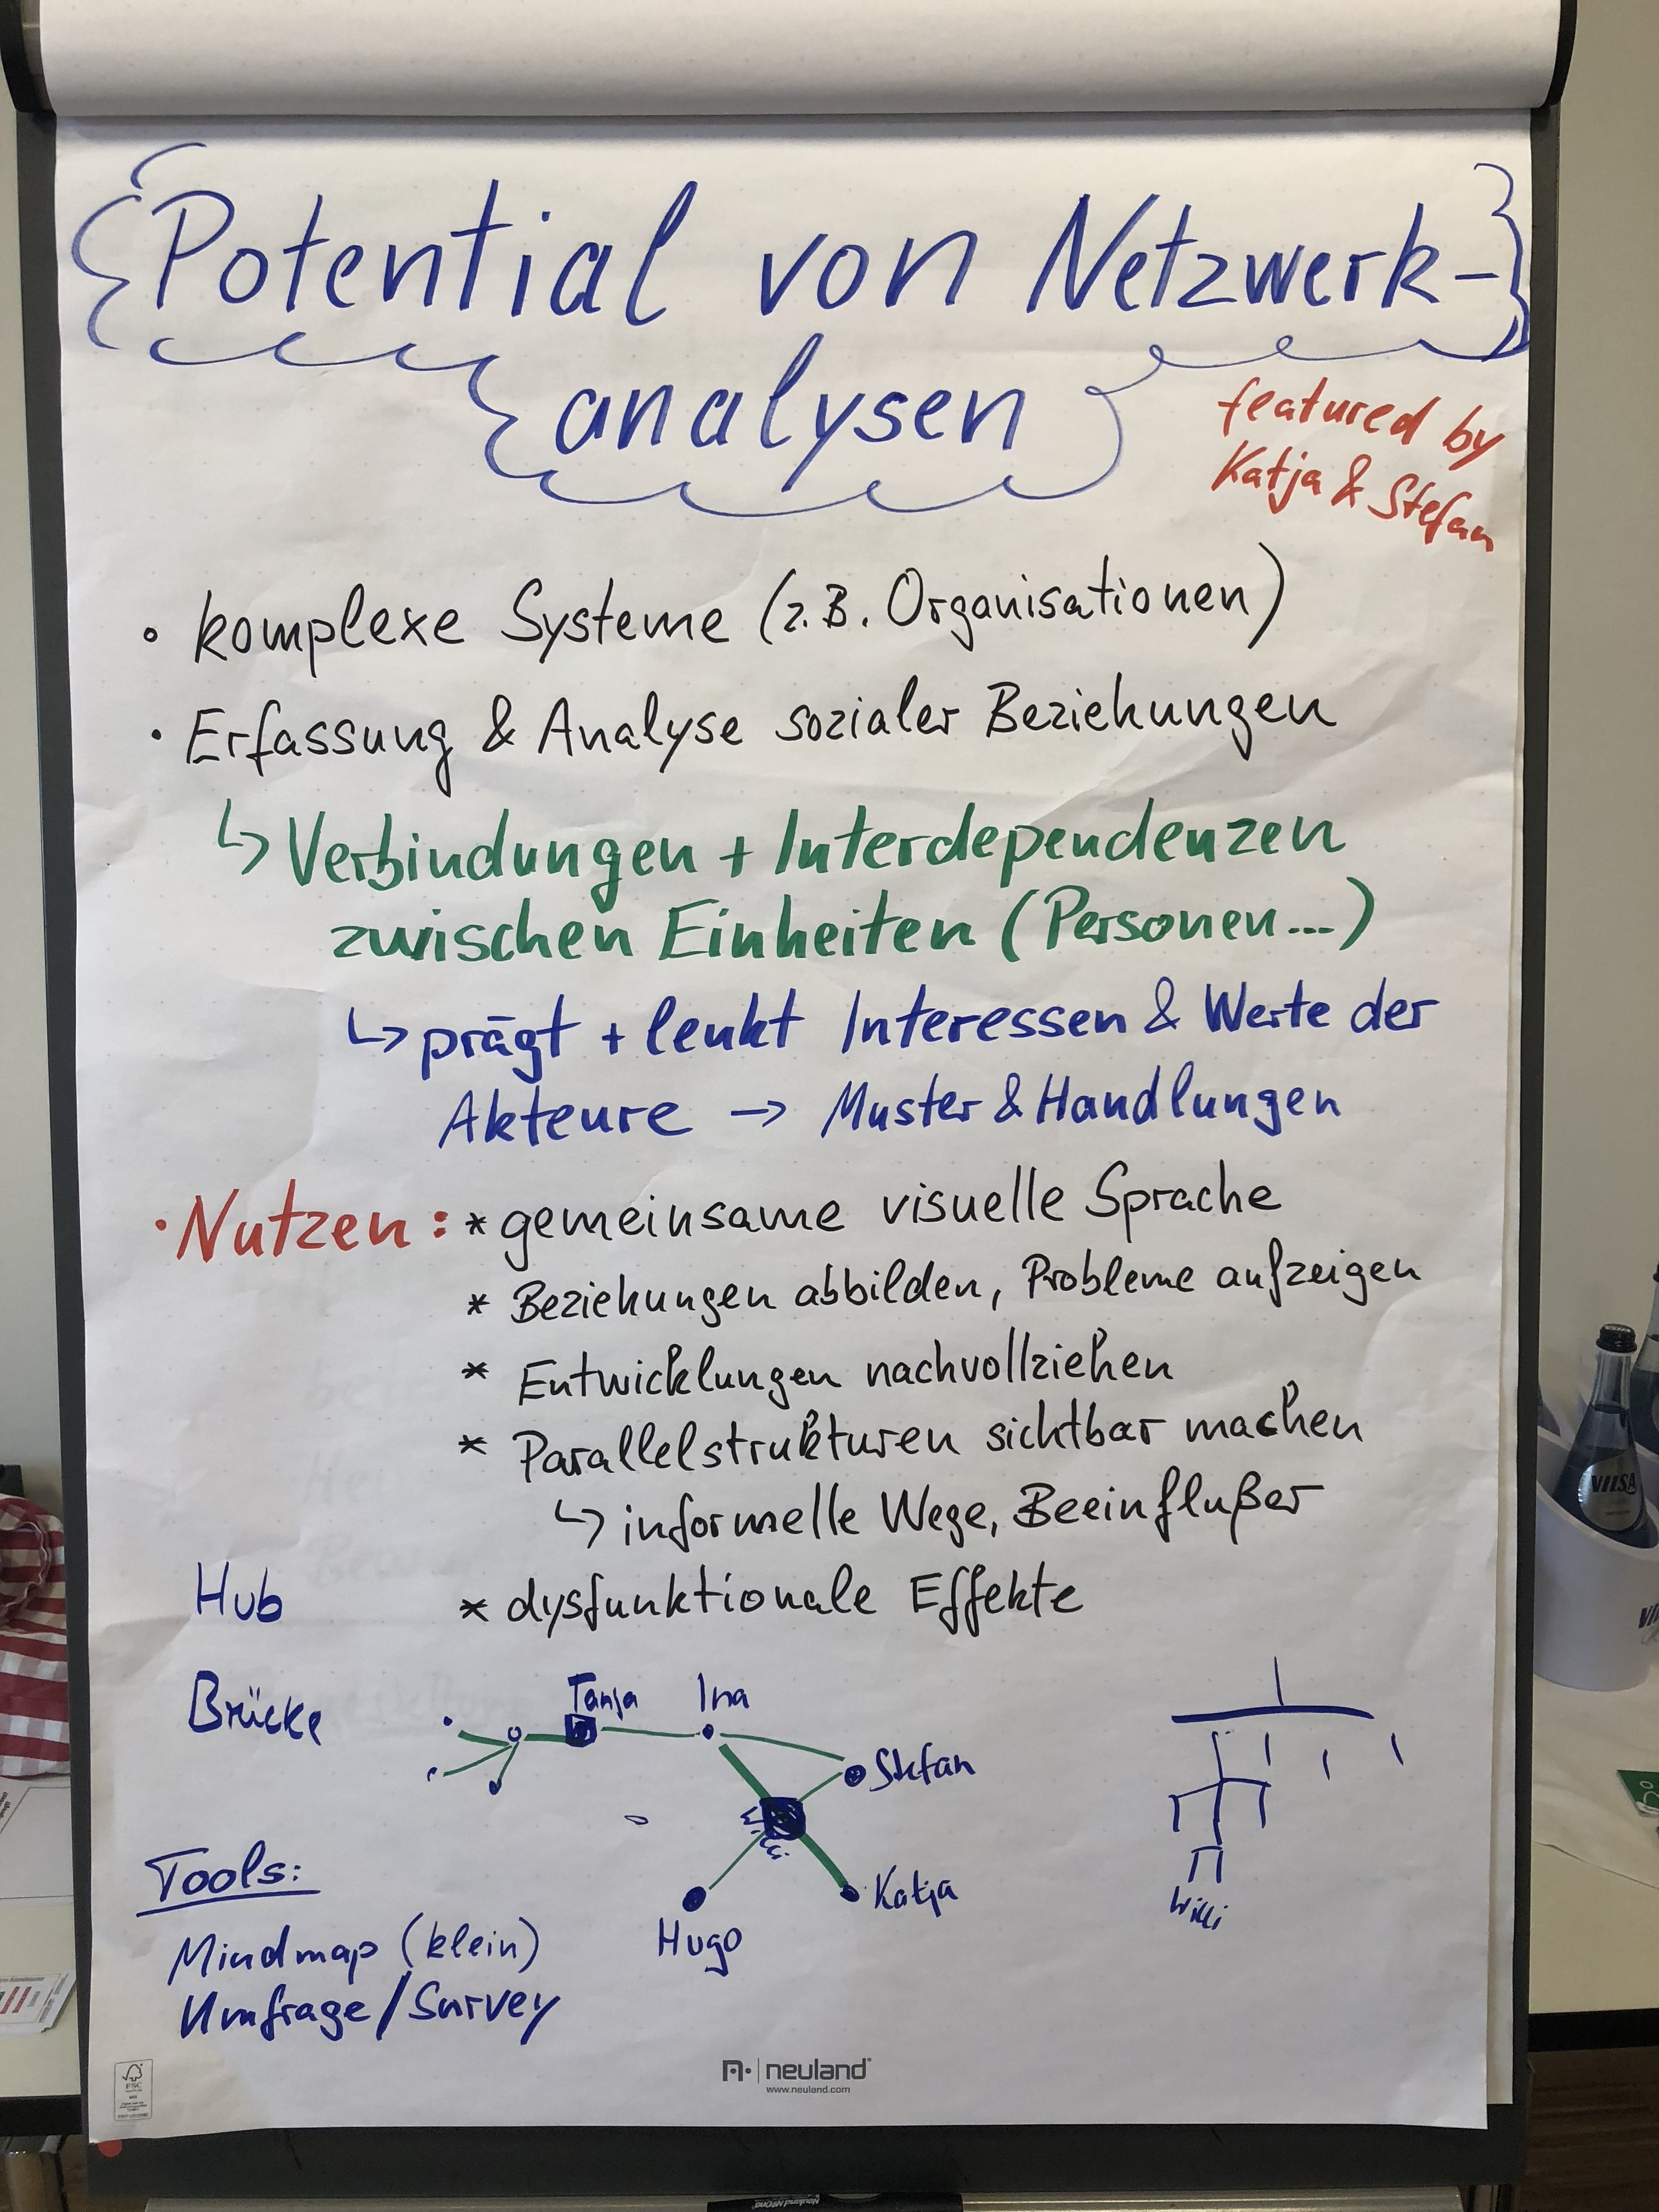 Potential von Netzwerk-
analysen
featured by
Katja & Stefan
• komplexe Systeme (z.B. Organisationen)
• Erfassung & Analyse sozialer Beziehungen
↳ Verbindungen + Interdependenzen
zwischen Einheiten (Personen...)
↳ prägt + lenkt Interessen & Werte der
Akteure → Muster & Handlungen
• Nutzen: * gemeinsame visuelle Sprache
* Beziehungen abbilden, Probleme aufzeigen
* Entwicklungen nachvollziehen
* Parallelstrukturen sichtbar machen
↳ informelle Wege, Beeinflußer
Hub * dysfunktionale Effekte
Brücke
Tanja Ina
Stefan
Katja
Hugo
Willi
Tools:
Mindmap (klein)
Umfrage/Survey
neuland
www.neuland.com
FSC
VILSA